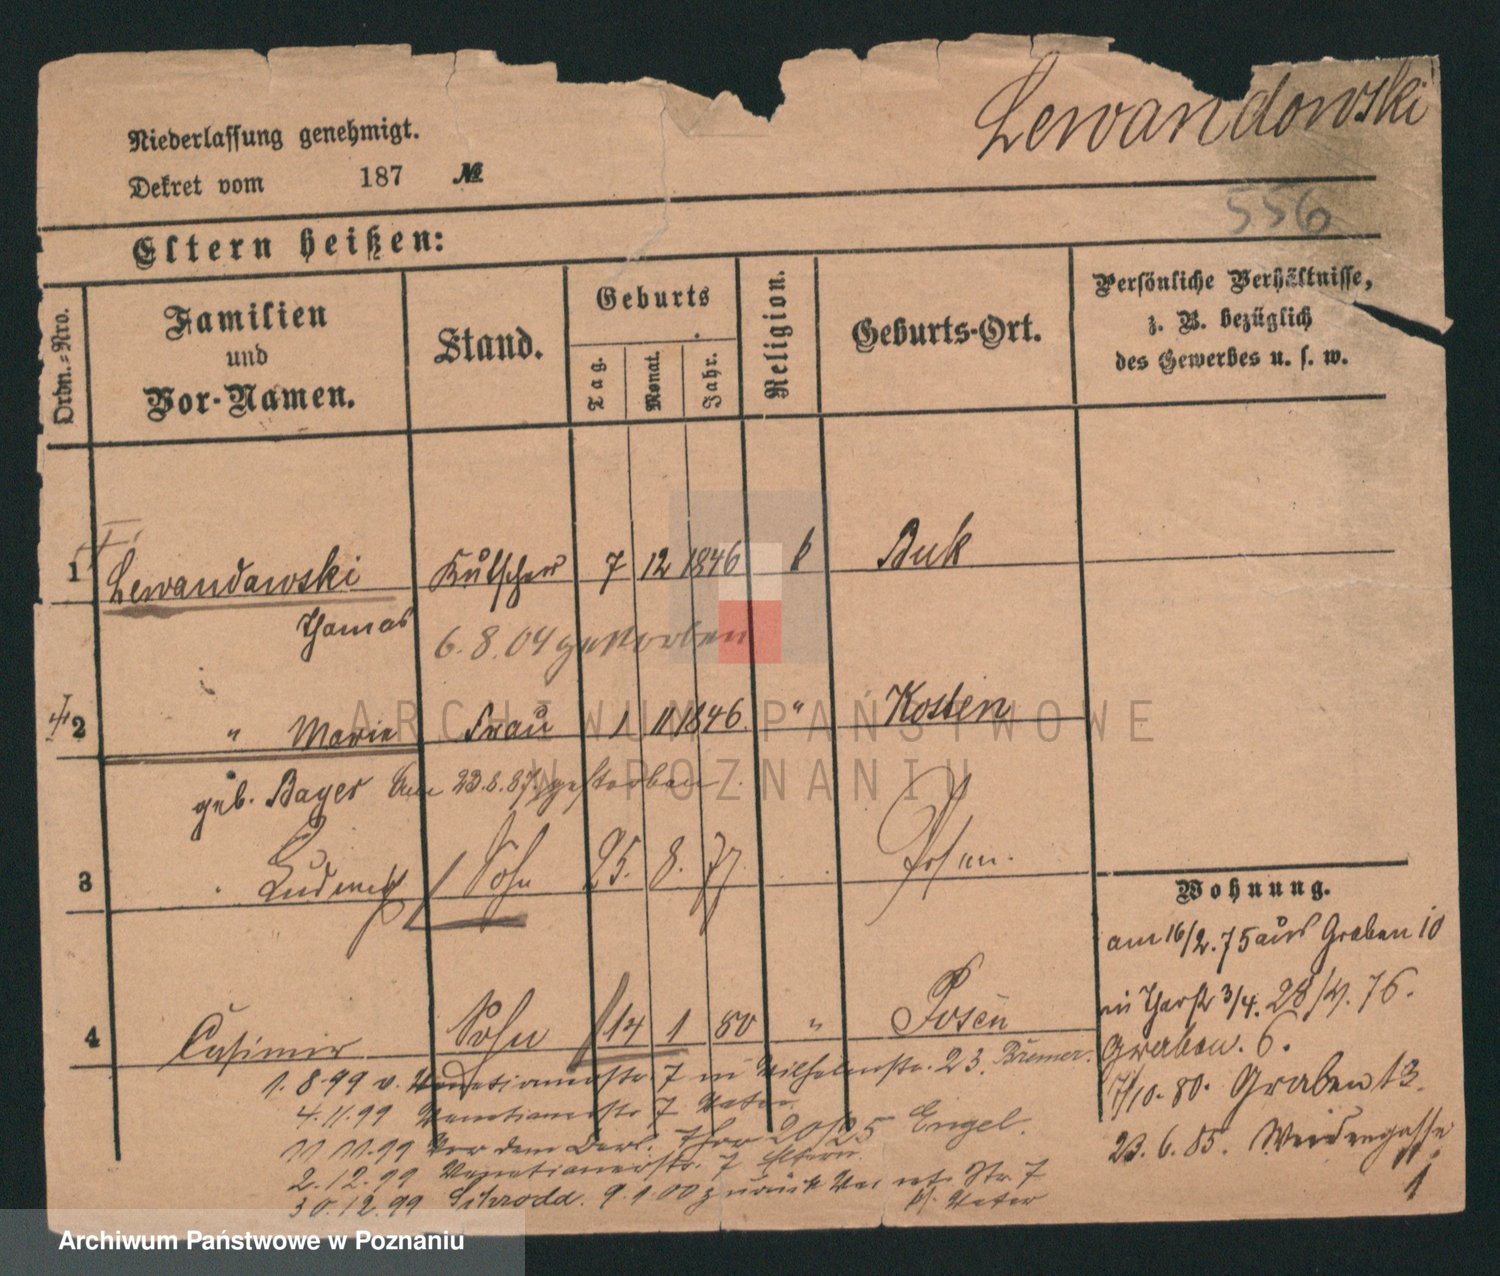 Lewandowski
Niederlassung genehmigt.
Dekret vom 187 №
556
Eltern heißen:
Ordn.-Nro.
Familien und Vor-Namen.
Stand.
Geburts
Tag.
Monat.
Jahr.
Religion.
Geburts-Ort.
Persönliche Verhältnisse,
z. B. bezüglich
des Gewerbes u. s. w.
1 Lewandowski Kutscher 7 12 1846 k Buk
Thomas
6.8.04 gestorben
2 " Marie Frau 1 11 1846. " Kosten
geb. Bayer am 23.8.87 gestorben
3 Ludwig Sohn 25. 8. 77 Posen.
4 Casimir Sohn 14 1 80 " Posen
Wohnung.
am 16/2.75 aus Graben 10
in Thorstr 3/4. 28/4. 76.
Graben. 6.
7/10. 80. Graben 13.
23.6.85. Weidengasse
1
1.8.99 v. Venetianerstr. 7 in Wilhelmstr. 23. Bremer.
4.11.99 Venetianerstr 7 Vater.
11.11.99 Vor dem Berl. Thor 20/25 Engel.
2.12.99 Venetianerstr. 7 Eltern.
30.12.99 Schrodd. 9.1.00 zurück Str. 7
Vater
ARCHIWUM PAŃSTWOWE
W POZNANIU
Archiwum Państwowe w Poznaniu